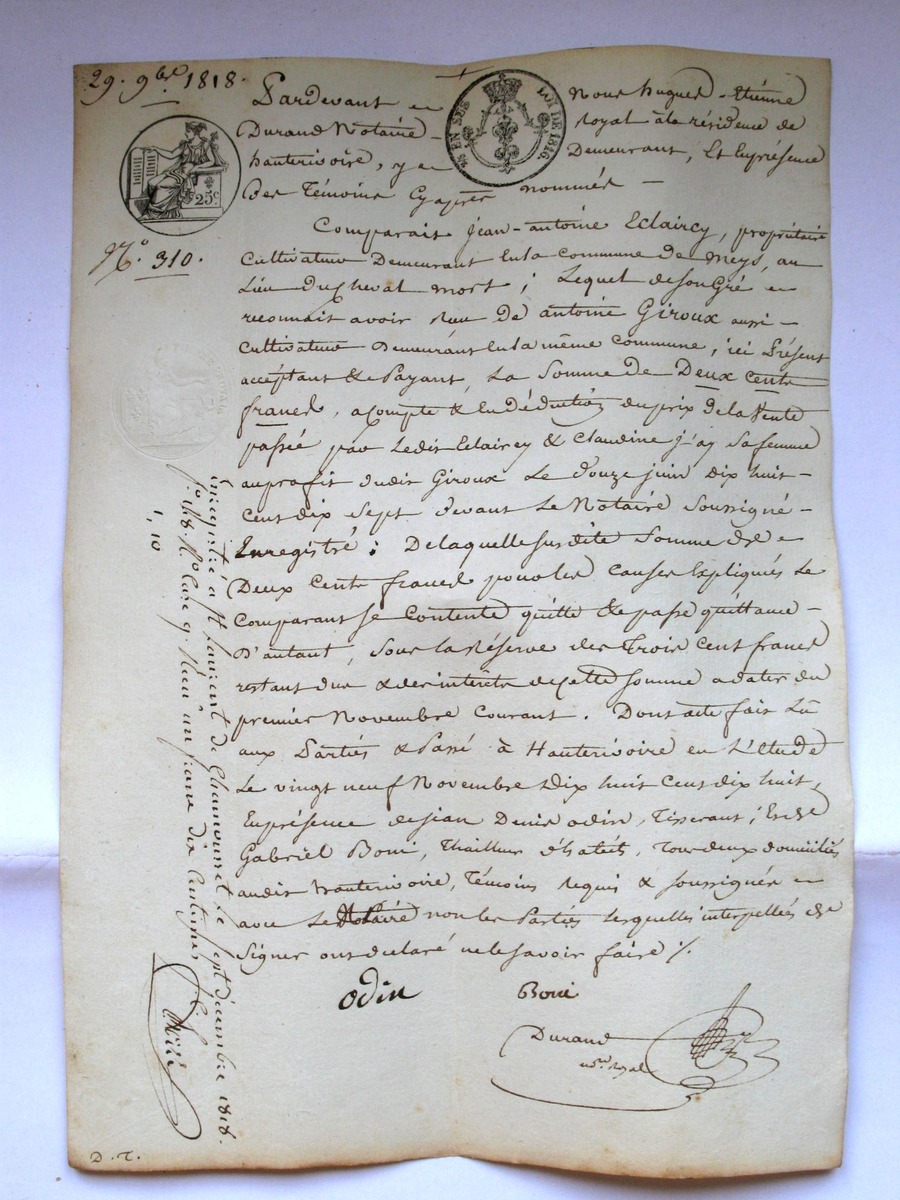 29. 9bre 1818.
Pardevant
nous hugues - Etiénne
Durand Notaire
royal à la résidence de
hauterivoire, y
Demeurant, Et En présence
Des Témoins Cy après nommés -
25 EN SUS
LOI DE 1816
25c
N° 310.
Comparait Jean-antoine Eclaircy, propriétaire
Cultivateur Demeurant En la Commune de meys, au
Lieu du cheval mort ; Lequel de son Gré
reconnait avoir Reçu de antoine Giroux aussi -
Cultivateur Demeurant En la même Commune, ici Présent
acceptant & Payant, La Somme de Deux cents
francs, a Compte & En Déduction du prix de la Vente
passée par Ledit Eclaircy & Claudine j'ay Sa femme
au profit dudit Giroux Le Douze juin dix huit -
Cent dix Sept devant Le Notaire Soussigné -
Enregistré ; De laquelle Susdite Somme de
Deux Cents francs pour les Causes Expliqués Le
Comparant Se Contente quitte & passe quittance -
D'autant, Sous la Réserve des Trois Cent francs
restant due & des interets de cette Somme a dater du
premier Novembre Courant. Dont acte fait Lu
aux Parties & Passé à Hauterivoire en L'etude
Le vingt neuf Novembre Dix huit Cent dix huit,
En présence de jean Denis odin, Tisserant ; Et de
Gabriel Boni, Thailleur d'habits, Tous deux domiciliés
audit hauterivoire, Témoins Requis & Soussignés
avec Le Notaire non les Parties lesquelles interpellés de
Signer ont déclaré ne le Savoir faire ./.
odin
Boni
Durand
nre royal
Enregistré a St Laurent de Chamousset le sept décembre 1818.
fo. 118. Ro. Case 9. Reçu un franc dix centimes
1, 10
D. T.